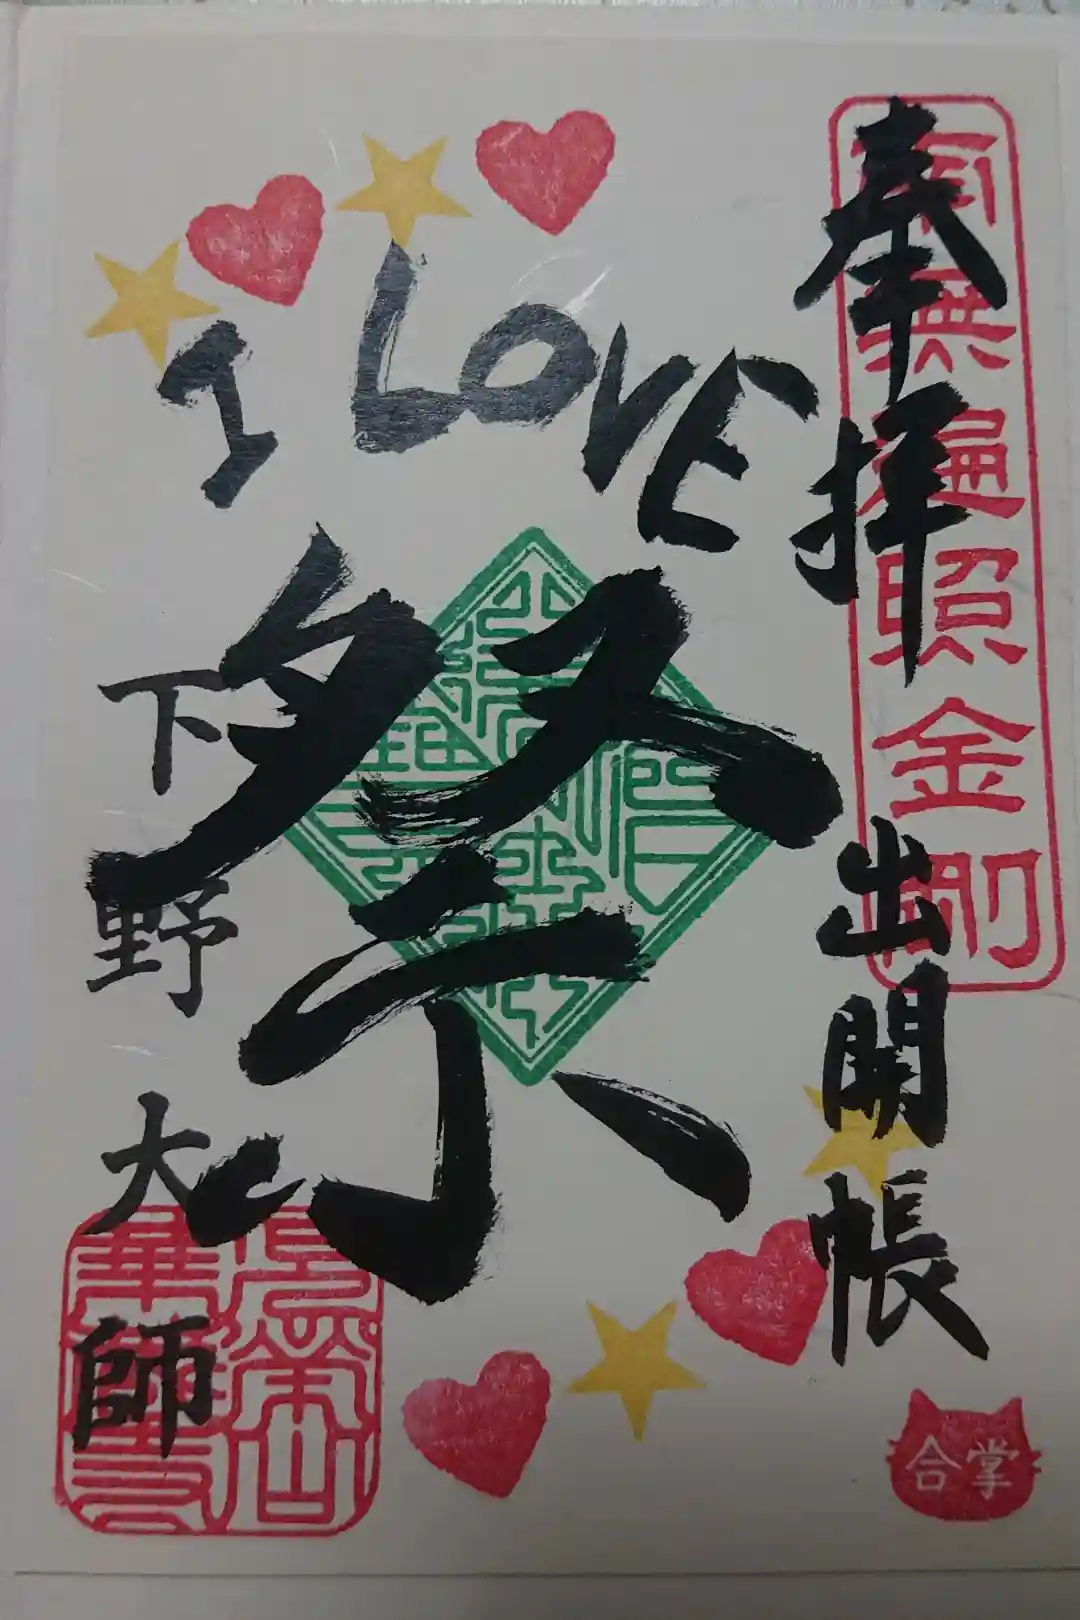 奉拝
出開帳
南無遍照金剛
I LOVE
祭
下野大師
華蔵寺
合掌